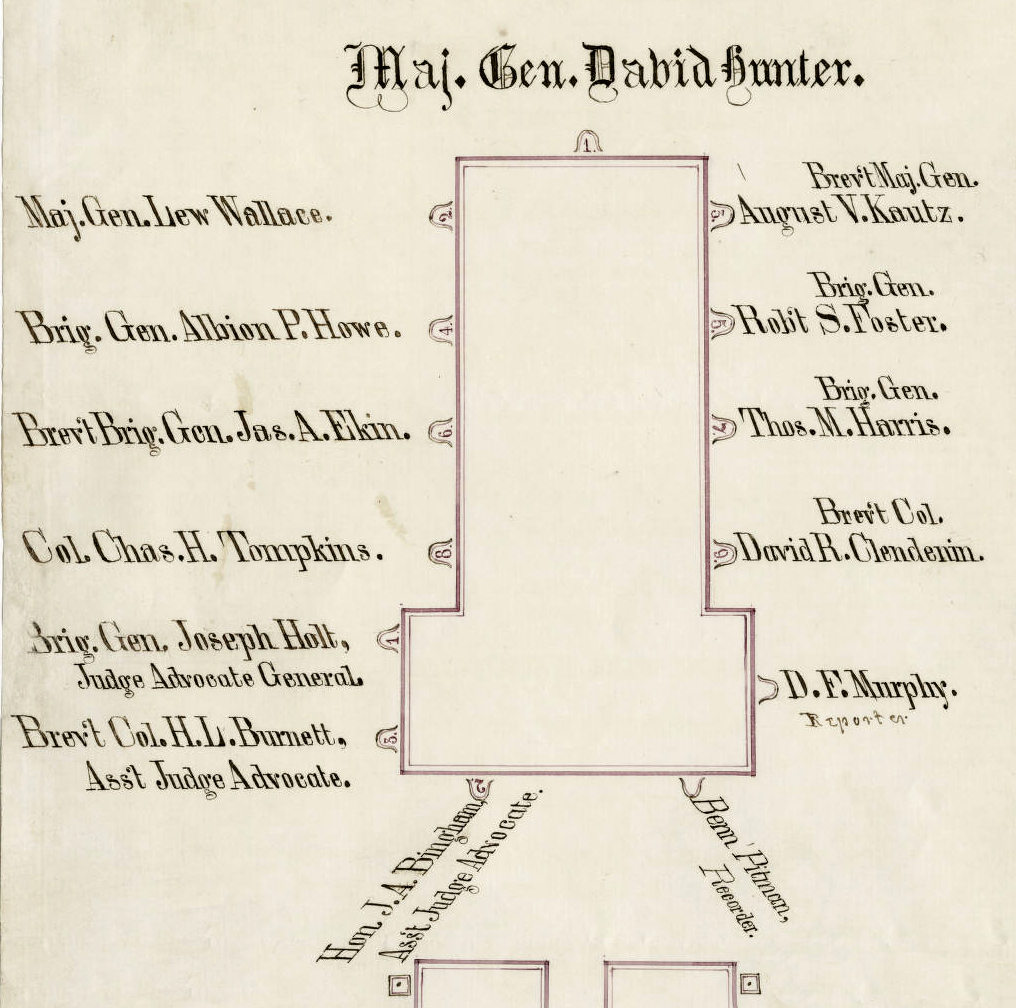 Maj. Gen. David Hunter.
1.
Maj. Gen. Lew Wallace.
2.
3.
Brev't Maj. Gen.
August V. Kautz.
Brig. Gen. Albion P. Howe.
4.
5.
Brig. Gen.
Rob't S. Foster.
Brev't Brig. Gen. Jas. A. Ekin.
6.
7.
Brig. Gen.
Thos. M. Harris.
Col. Chas. H. Tompkins.
8.
9.
Brev't Col.
David R. Clendenin.
Brig. Gen. Joseph Holt,
Judge Advocate General.
1.
D. F. Murphy.
Reporter
Brev't Col. H. L. Burnett,
Ass't Judge Advocate.
3.
2
Hon. J. A. Bingham,
Ass't Judge Advocate.
Benn Pitman,
Recorder.